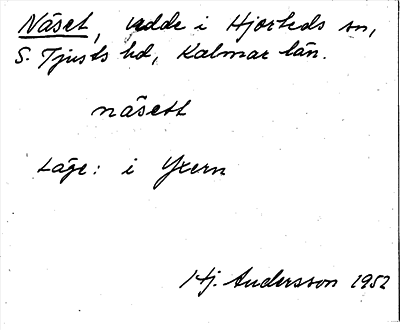 Näset, udde i Hjorteds sn,
S. Tjusts hd, Kalmar län.
näsett
Läge: i Yxern
Hj. Andersson 1952